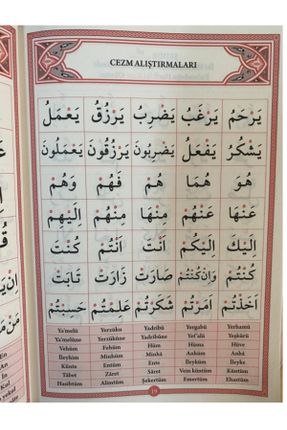 CEZM ALIŞTIRMALARI
يَرْحَمُ يَرْغَبُ يَضْرِبُ يَرْزُقُ يَعْمَلُ
يَشْكُرُ يَفْعَلُ يَضْرِبُونَ يَرْزُقُونَ يَعْمَلُونَ
هُوَ هُمَا هُمْ فَهُمْ وَهُمْ
عَنْهَا عَنْهُمْ مِنْهَا مِنْهُمْ اِلَيْهِمْ
اِلَيْكَ اِلَيْكُمْ اَنْتَ اَنْتُمْ كُنْتَ
كُنْتُمْ وَاِنْ كُنْتُمْ صَارَتْ زَارَتْ تَابَتْ
اَخَذْتُمْ اَمَرْتُمْ شَكَرْتُمْ عَلِمْتُمْ حَسِبْتُمْ
Ya'melü Yerzüku Yadribü Yergabü Yerhamü
Ya'melüne Yerzüküne Yadribüne Yef'alü Yeşkürü
Vehüm Fehüm Hüm Hüma Hüve
İleyhim Minhüm Minhâ Anhüm Anhâ
Künte Entüm Ente İleyküm İleyke
Tâbet Zâret Sâret Vein küntüm Küntüm
Hasibtüm Alimtüm Şekertüm Emertüm Ehaztüm
19